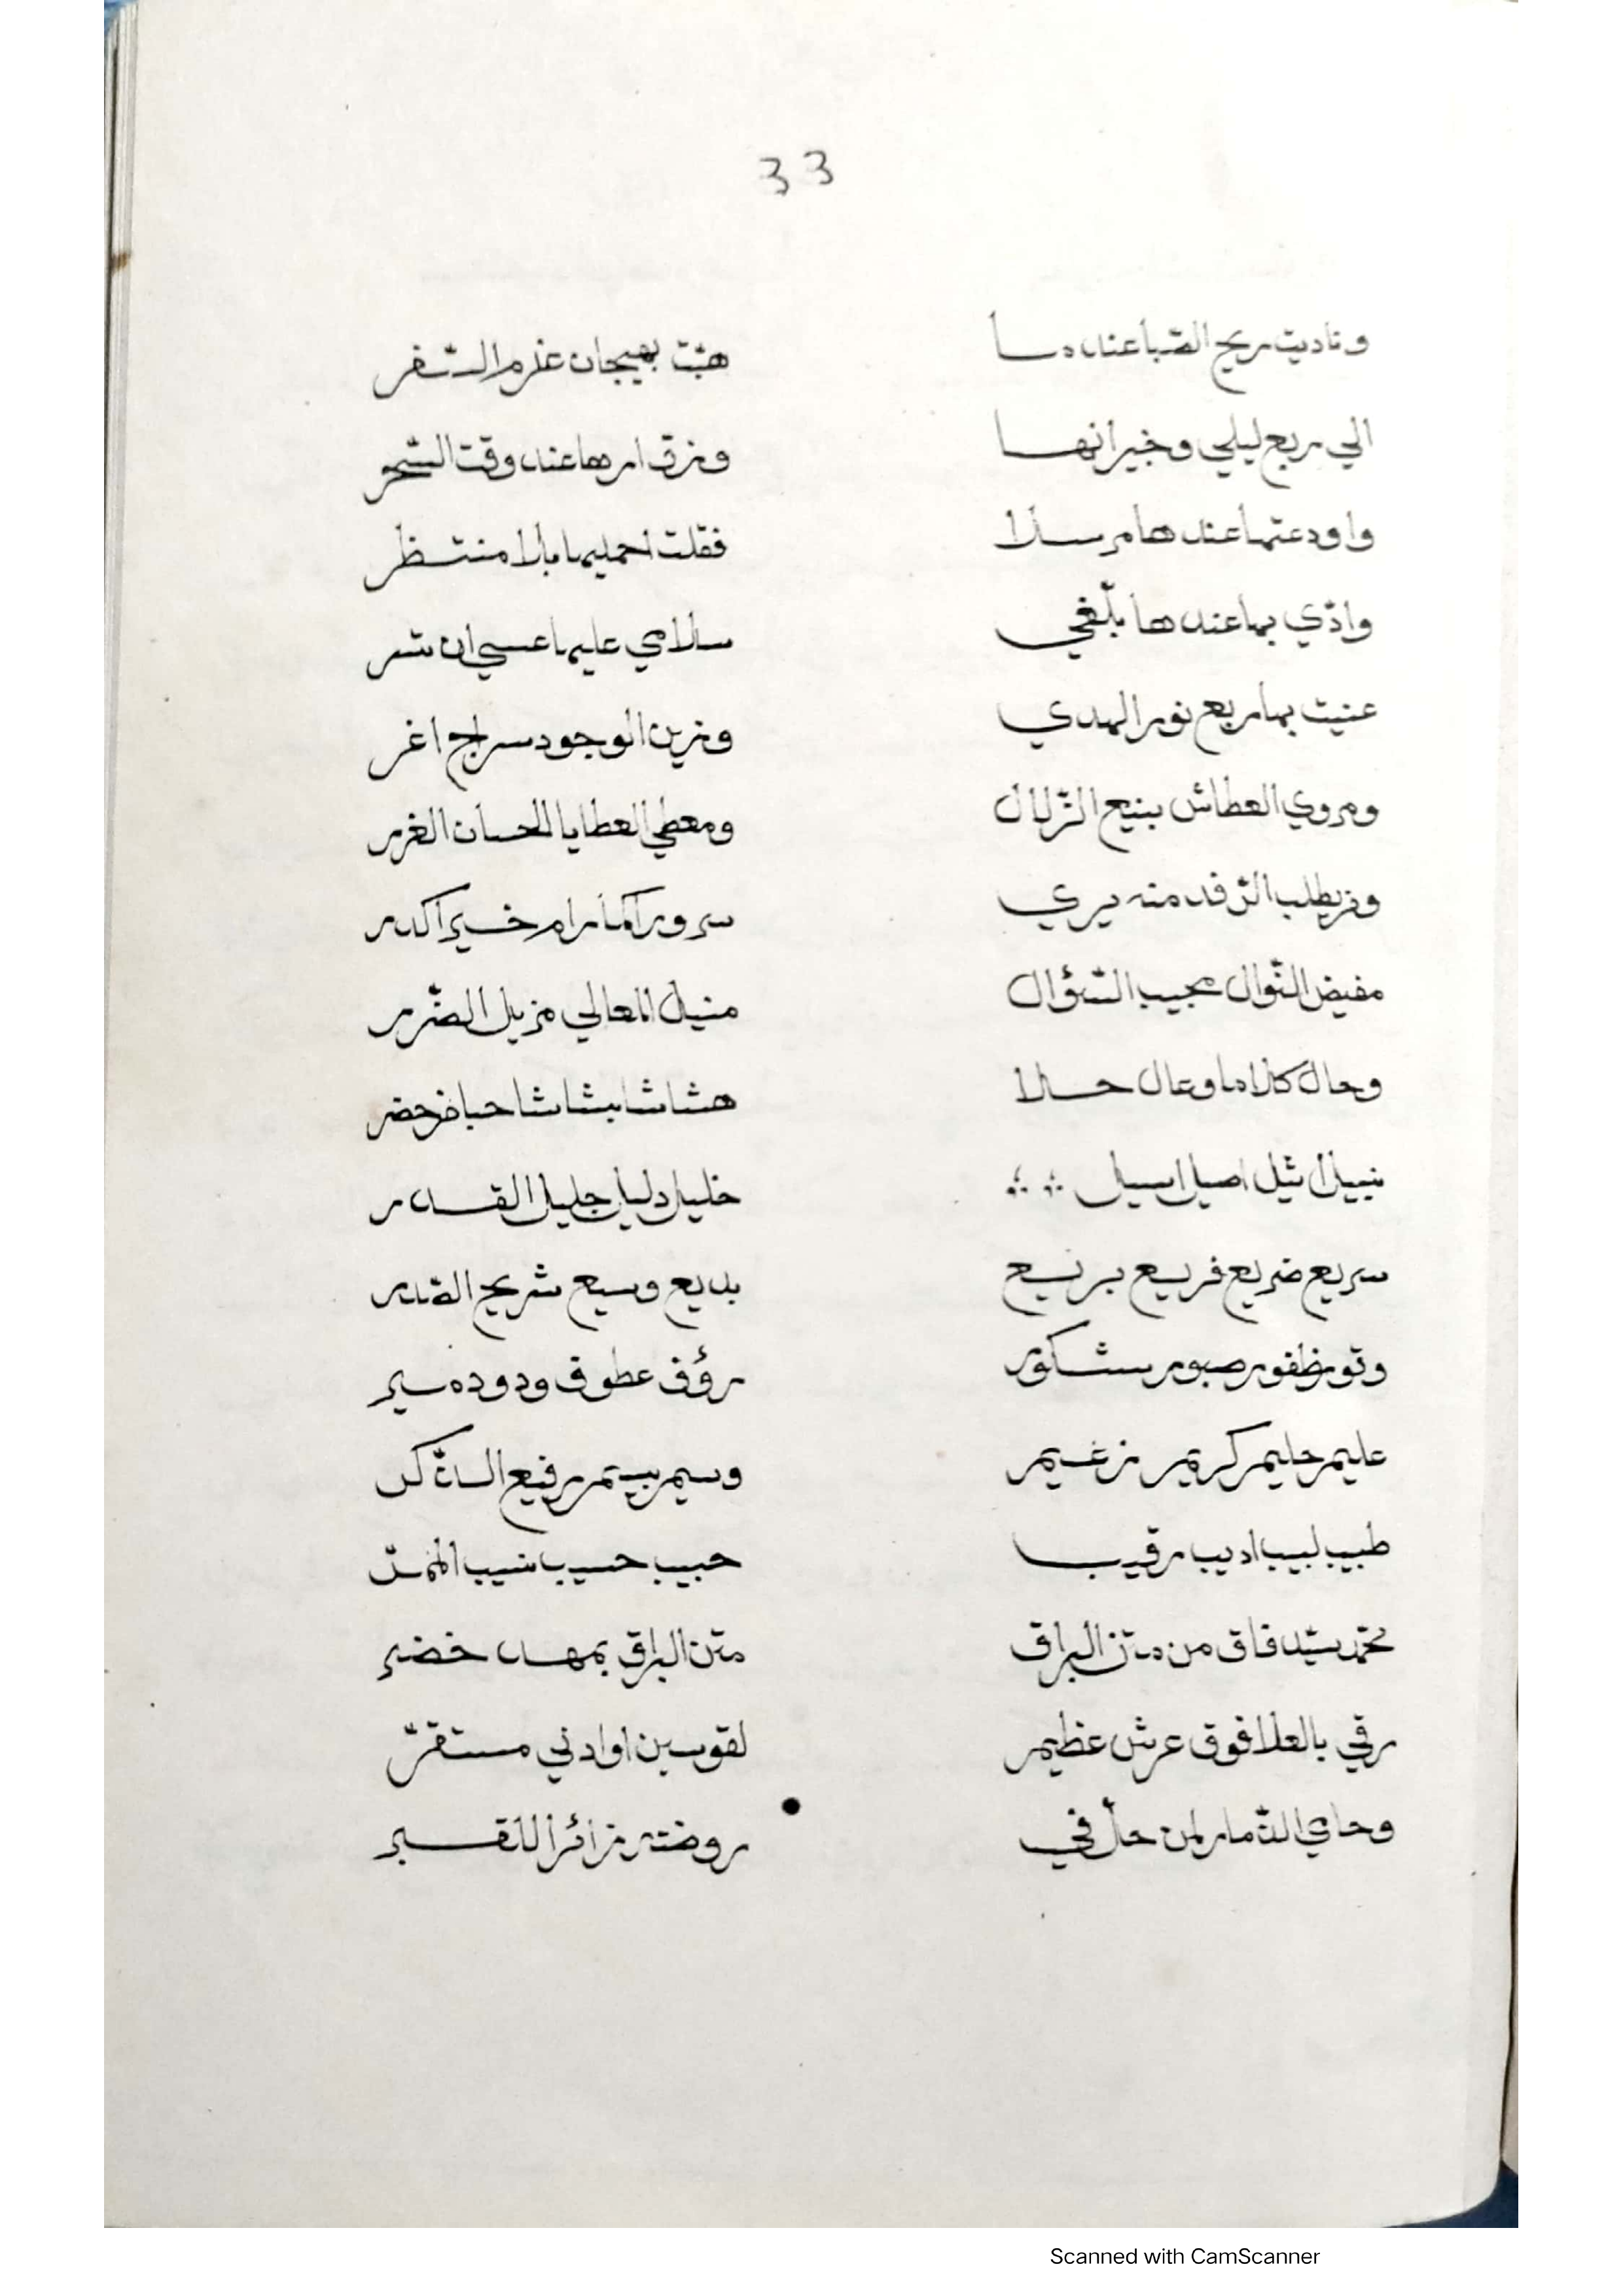 33
وناديت ريح الصّبا عندما هبّت بهيجان عزم السّفر
الي ربع ليلي وخيرانها وزق ارها عند وقت السّحر
واودعتها عندها مرسلا فقلت احمليها بلا منتظر
وادّي بها عندها بلّغي سلامي عليها عسي ان تسر
عنيت بها ربع نور الهدي وزين الوجود سراج اغر
ومروي العطاش بنبع الزّلال ومعطي العطايا الحسان الغرر
ومن يطلب الرّفد منه يري سرورا كما رام خير اكدر
مفيض النّوال مجيب السّؤال منيل المعالي مزيل الضّرر
وحال كلاما وعال حلا هشاشا بشاشا حبا من حضر
نبيل اثيل اصيل اسيل خليل دليل جليل القدر
سريع ضريع قريع بريع بديع وسيع شريح الصّدر
وقور ظفور صبور شكور رؤف عطوف ودود
عليم حليم كريم زغيم وسيم بسيم رفيع الذّكر
طبيب لبيب اديب رقيب حبيب حسيب نسيب
محمّد سيّد فاق من متن البراق متن البراق بمهد خضير
رقي بالعلا فوق عرش عظيم لقوسين او ادني مستقرّ
وحامي الذّمار لمن حلّ في روضته زائرا للقبر
Scanned with CamScanner